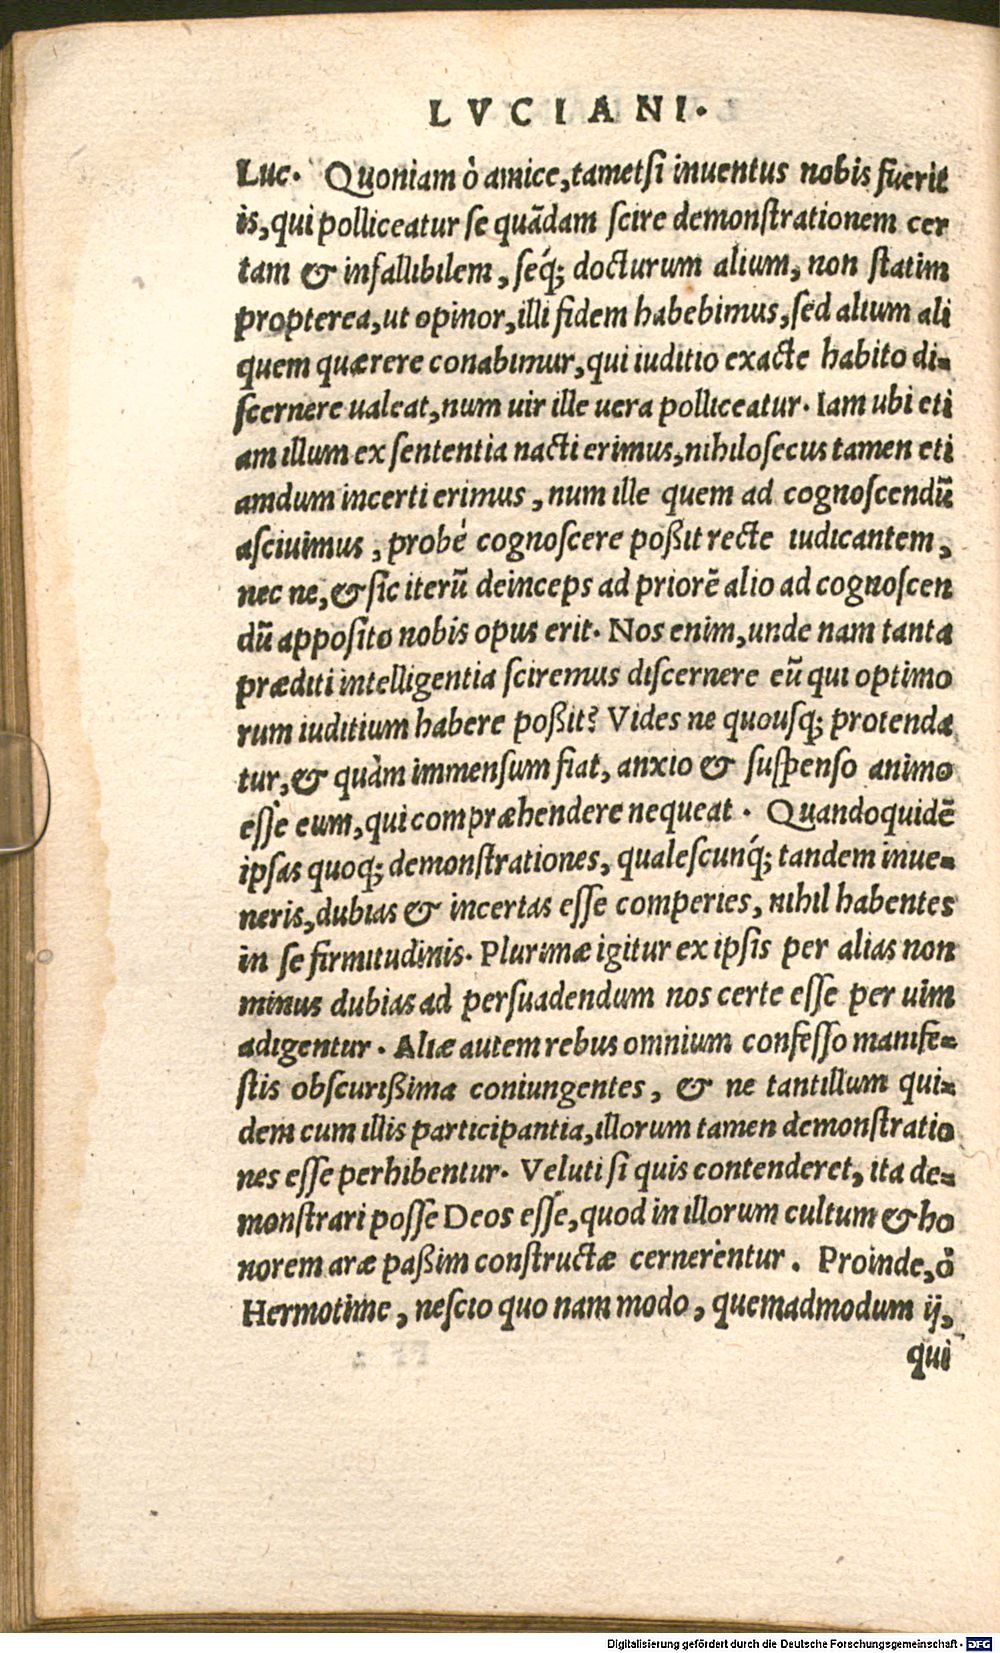 LVCIANI.
Luc. Quoniam ò amice, tametsi inuentus nobis fuerit
is, qui polliceatur se quãdam scire demonstrationem cer
tam & infallibilem, seq́; docturum alium, non statim
propterea, ut opinor, illi fidem habebimus, sed alium ali
quem quærere conabimur, qui iuditio exacte habito di-
scernere ualeat, num uir ille uera polliceatur. Iam ubi eti
am illum ex sententia nacti erimus, nihilosecus tamen eti
amdum incerti erimus, num ille quem ad cognoscendũ
asciuimus, probé cognoscere poßit recte iudicantem,
nec ne, & sic iterũ deinceps ad priorẽ alio ad cognoscen
dũ apposito nobis opus erit. Nos enim, unde nam tanta
præditi intelligentia sciremus discernere eũ qui optimo
rum iuditium habere poßit? Vides ne quousq; protendæ
tur, & quàm immensum fiat, anxio & suspenso animo
esse eum, qui compræhendere nequeat. Quandoquidẽ
ipsas quoq; demonstrationes, qualescunq́; tandem inue-
neris, dubias & incertas esse comperies, nihil habentes
in se firmitudinis. Plurimæ igitur ex ipsis per alias non
minus dubias ad persuadendum nos certe esse per uim
adigentur. Aliæ autem rebus omnium confesso manife-
stis obscurißima coniungentes, & ne tantillum qui-
dem cum illis participantia, illorum tamen demonstratio
nes esse perhibentur. Veluti si quis contenderet, ita de-
monstrari posse Deos esse, quod in illorum cultum & ho
norem aræ paßim constructæ cernerentur. Proinde, ò
Hermotime, nescio quo nam modo, quemadmodum ij,
qui
Digitalisierung gefördert durch die Deutsche Forschungsgemeinschaft - DFG